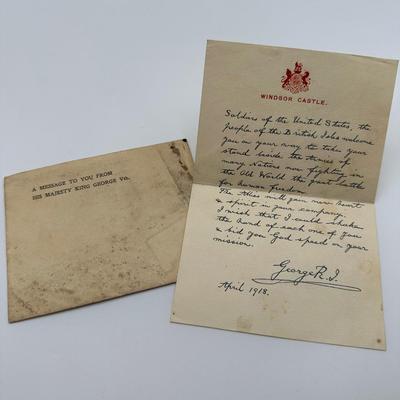 A MESSAGE TO YOU FROM
HIS MAJESTY KING GEORGE Vth.
WINDSOR CASTLE.
Soldiers of the United States, the
people of the British Isles welcome
you on your way to take your
stand beside the Armies of
many Nations now fighting in
the Old World the great battle
for human freedom.
The Allies will gain new heart
& spirit in your company.
I wish that I could shake
the hand of each one of you
& bid you God speed on your
mission.
George R.I.
April 1918.